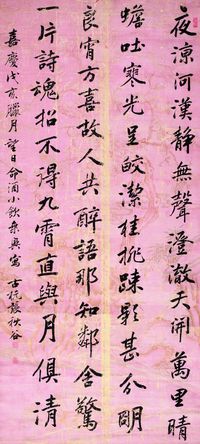 夜涼河漢靜無聲澄澈天開萬里晴
蟾吐寒光呈皎潔桂排踈影甚分明
良宵方喜故人共醉語那知鄰舍驚
一片詩魂招不得九霄直與月俱清
嘉慶戊臘月望日命酒小飲乘興寫 古杭張秋谷